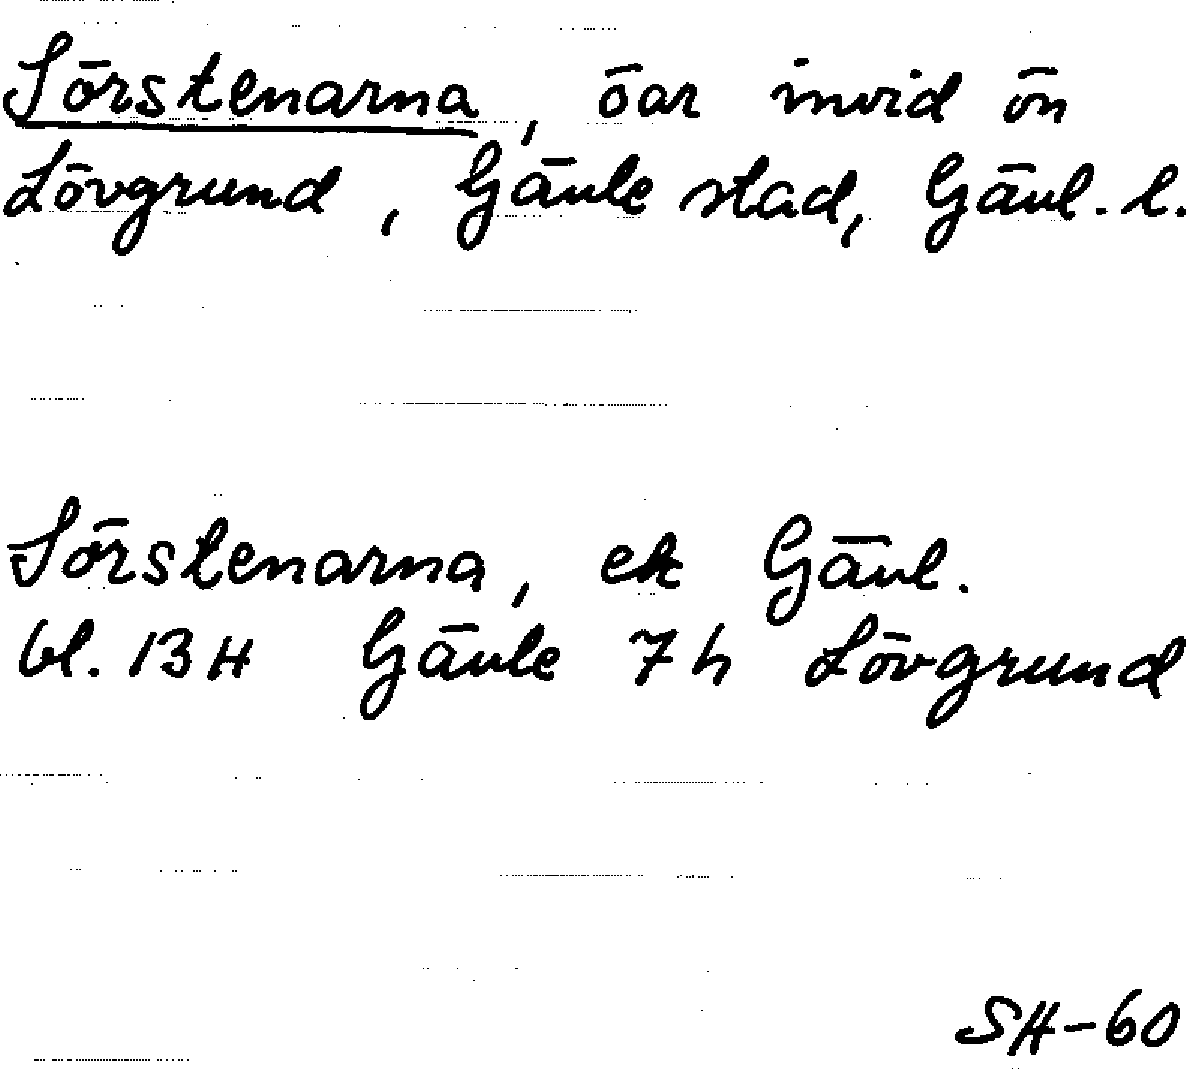 Sörstenarna, öar invid ön
Lövgrund, Gävle stad, Gävl. l.
Sörstenarna, ek Gävl.
bl. 13H Gävle 7h Lövgrund
SH-60